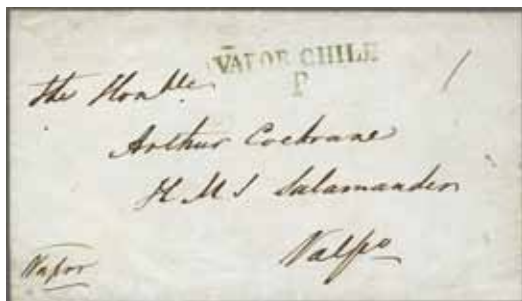 VAPOR CHILE
P
The Honble
Arthur Cochrane
H M S Salamander
Valpo
Vapor